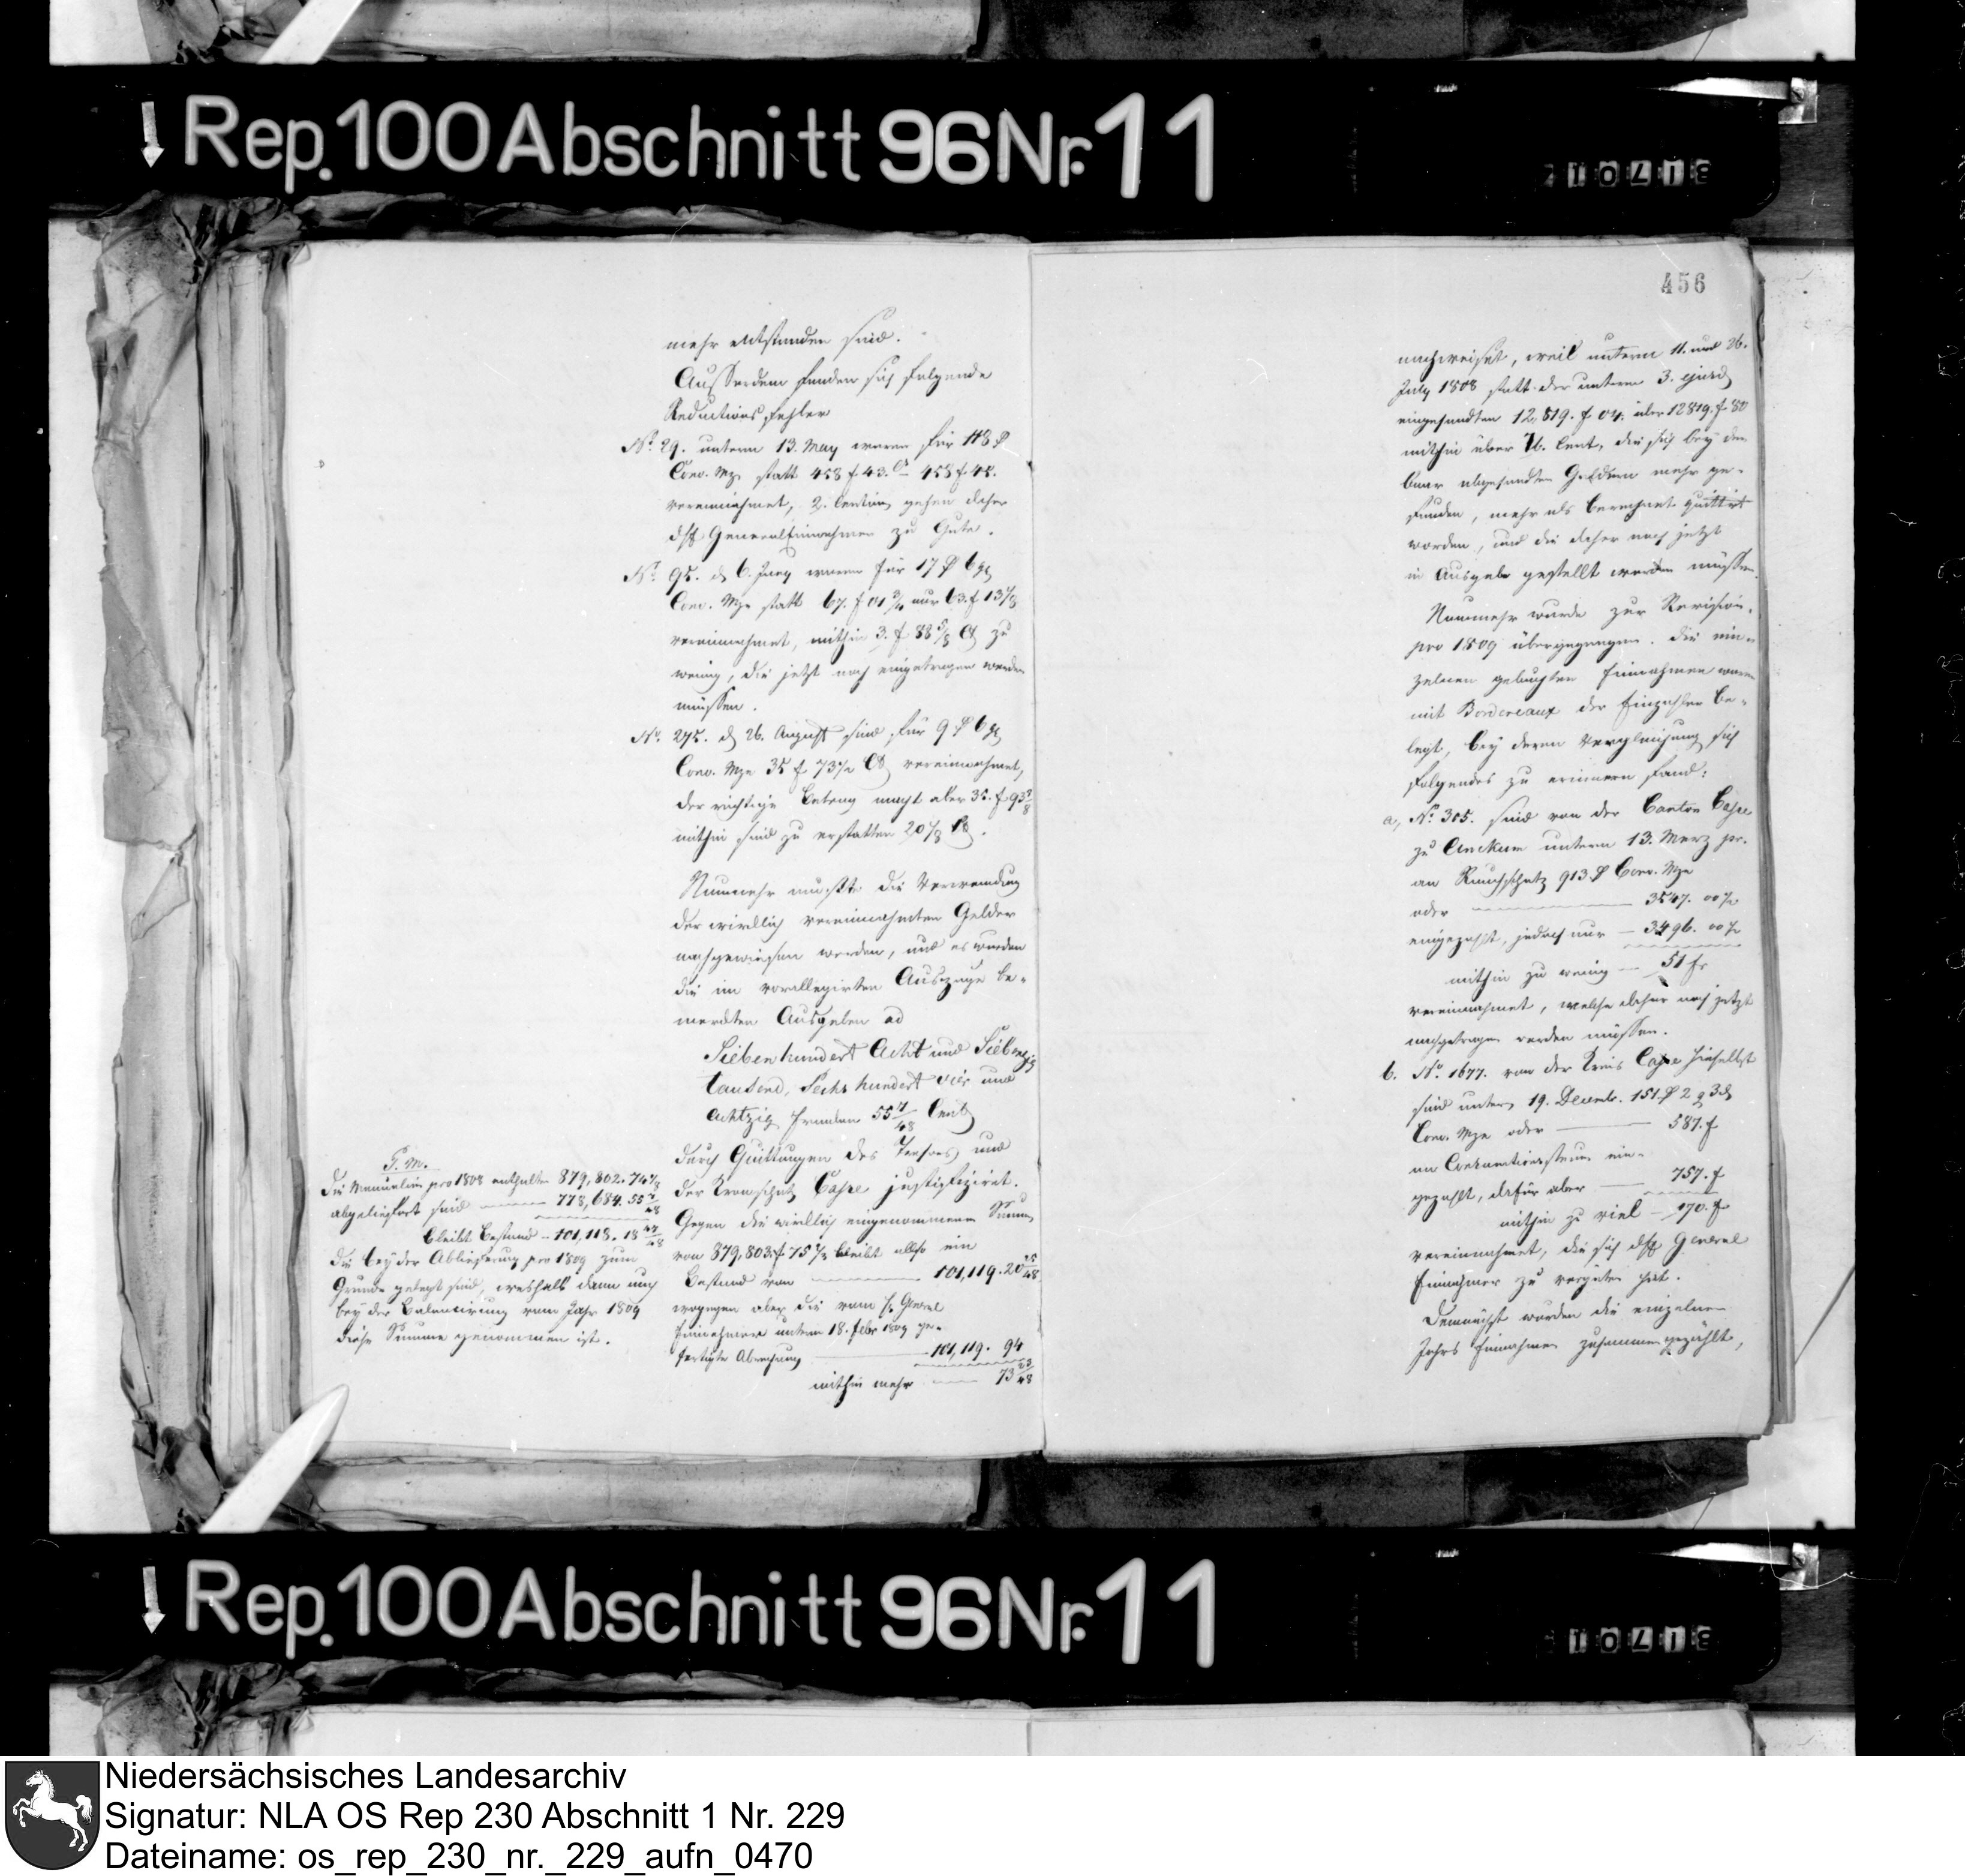 Rep. 100 Abschnitt 96 Nr. 11
mehr entstanden sind.
Ausserdem fanden sich folgende
Reductions fehler
No. 29. unterm 13. May waren für 118
Conv. Mze statt 458 f. 43. Ct 458 f. 45.
vereinnahmet, 2. Centim gehen daher
General Einnehmer zu Gute.
No. 95. d 6. Juny waren für 17 6
Conv. Mze statt 67. f 01 3/4 nur 63. f 13 1/8
vereinnahmet, mithin 3. f 88 5/8 Ct zu
wenig, die jetzt noch eingetragen werden
müssen.
No. 275. d 26. August sind für 9 6
Conv. Mze 35 f 73 1/2 Ct vereinnahmet,
der richtige Betrag macht aber 35. f 93
mithin sind zu erstatten 20 1/8 Ct.
Nunmehr mußte die Verwendung
der wirklich vereinnahmten Gelder
nachgewiesen werden, und es wurden
die im vorallegirten Auszuge be-
merckten Ausgaben ad
Siebenhundert Acht und Siebenzig
tausend, Sechs hundert vier und
achtzig Franken 55 7/48 Cent
durch Quittungen des Tresors und
der Kronschatz Casse justifizirt.
Gegen die wirklich eingenommene Summe
von 879,803. f 75 7/8 bleibt also ein
Bestand von 101,119. 20 35/48
wogegen aber die vom H. General
Einnehmer unterm 18. Febr 1809 ge-
fertigte Abrechnung 101,119. 94
mithin mehr 73 23/48
P. M.
Die Manualien pro 1808 enthalten 879,802. 74 1/8
abgeliefert sind 778,684. 55 7/48
bleibt Bestand 101,118. 18 47/48
die bey der Ablieferung pro 1809 zum
Grunde gelegt sind, weshalb dann auch
bey der Balancirung vom Jahr 1809
diese Summe genommen ist.
456
nachweiset, weil unterm 11. und 26.
July 1808 statt der unterm 3. ejusd
eingesandten 12,819. f 04. aber 12819. f 80
mithin über 76. Cent, die sich bey den
baar abgesandten Geldern mehr ge-
funden, mehr als berechnet quittirt
worden, und die daher noch jetzt
in Ausgabe gestellt werden müssen.
Nunmehr wurde zur Revision
pro 1809 übergegangen. die ein-
zelnen gebuchten Einnahmen waren
mit Bordereaux der Einzahler be-
legt, bey deren Vergleichung sich
folgendes zu erinnern fand:
a, No. 305. sind von der Canton Casse
zu Ankum unterm 13. Merz pr.
an Rauchschatz 913. Conv. Mze
oder 3547. 00 1/2
eingezahlt, jedoch nur 3496. 00 1/2
mithin zu wenig 51 fr
vereinnahmet, welche daher noch jetzt
nachgetragen werden müssen.
b. No. 1677. von der Kreis Casse hieselbst
sind unterm 19. Decemb. 151. 2 g 3 d
Conv. Mze oder 587. f
an Consumtionssteuer ein-
gezahlt, dafür aber 757. f
mithin zu viel 170. f
vereinnahmet, die sich General
Einnehmer zu vergüten hat.
Demnächst wurden die einzelnen
Jahrs Einnahmen zusammengezählt,
Rep. 100 Abschnitt 96 Nr. 11
Niedersächsisches Landesarchiv
Signatur: NLA OS Rep 230 Abschnitt 1 Nr. 229
Dateiname: os_rep_230_nr._229_aufn_0470